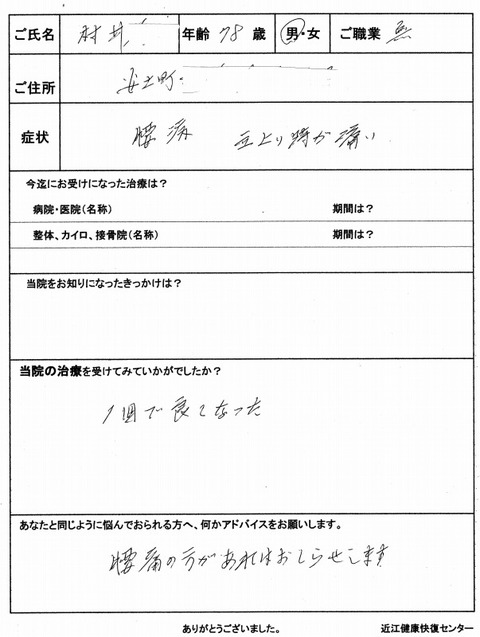 ご氏名 村井 年齢 78 歳 男・女 ご職業 無
ご住所 安土町
症状 腰痛 立上り時が痛い
今迄にお受けになった治療は?
病院・医院(名称) 期間は?
整体、カイロ、接骨院(名称) 期間は?
当院をお知りになったきっかけは?
当院の治療を受けてみていかがでしたか?
1回で良くなった
あなたと同じように悩んでおられる方へ、何かアドバイスをお願いします。
腰痛の方があればおしらせします
ありがとうございました。 近江健康快復センター